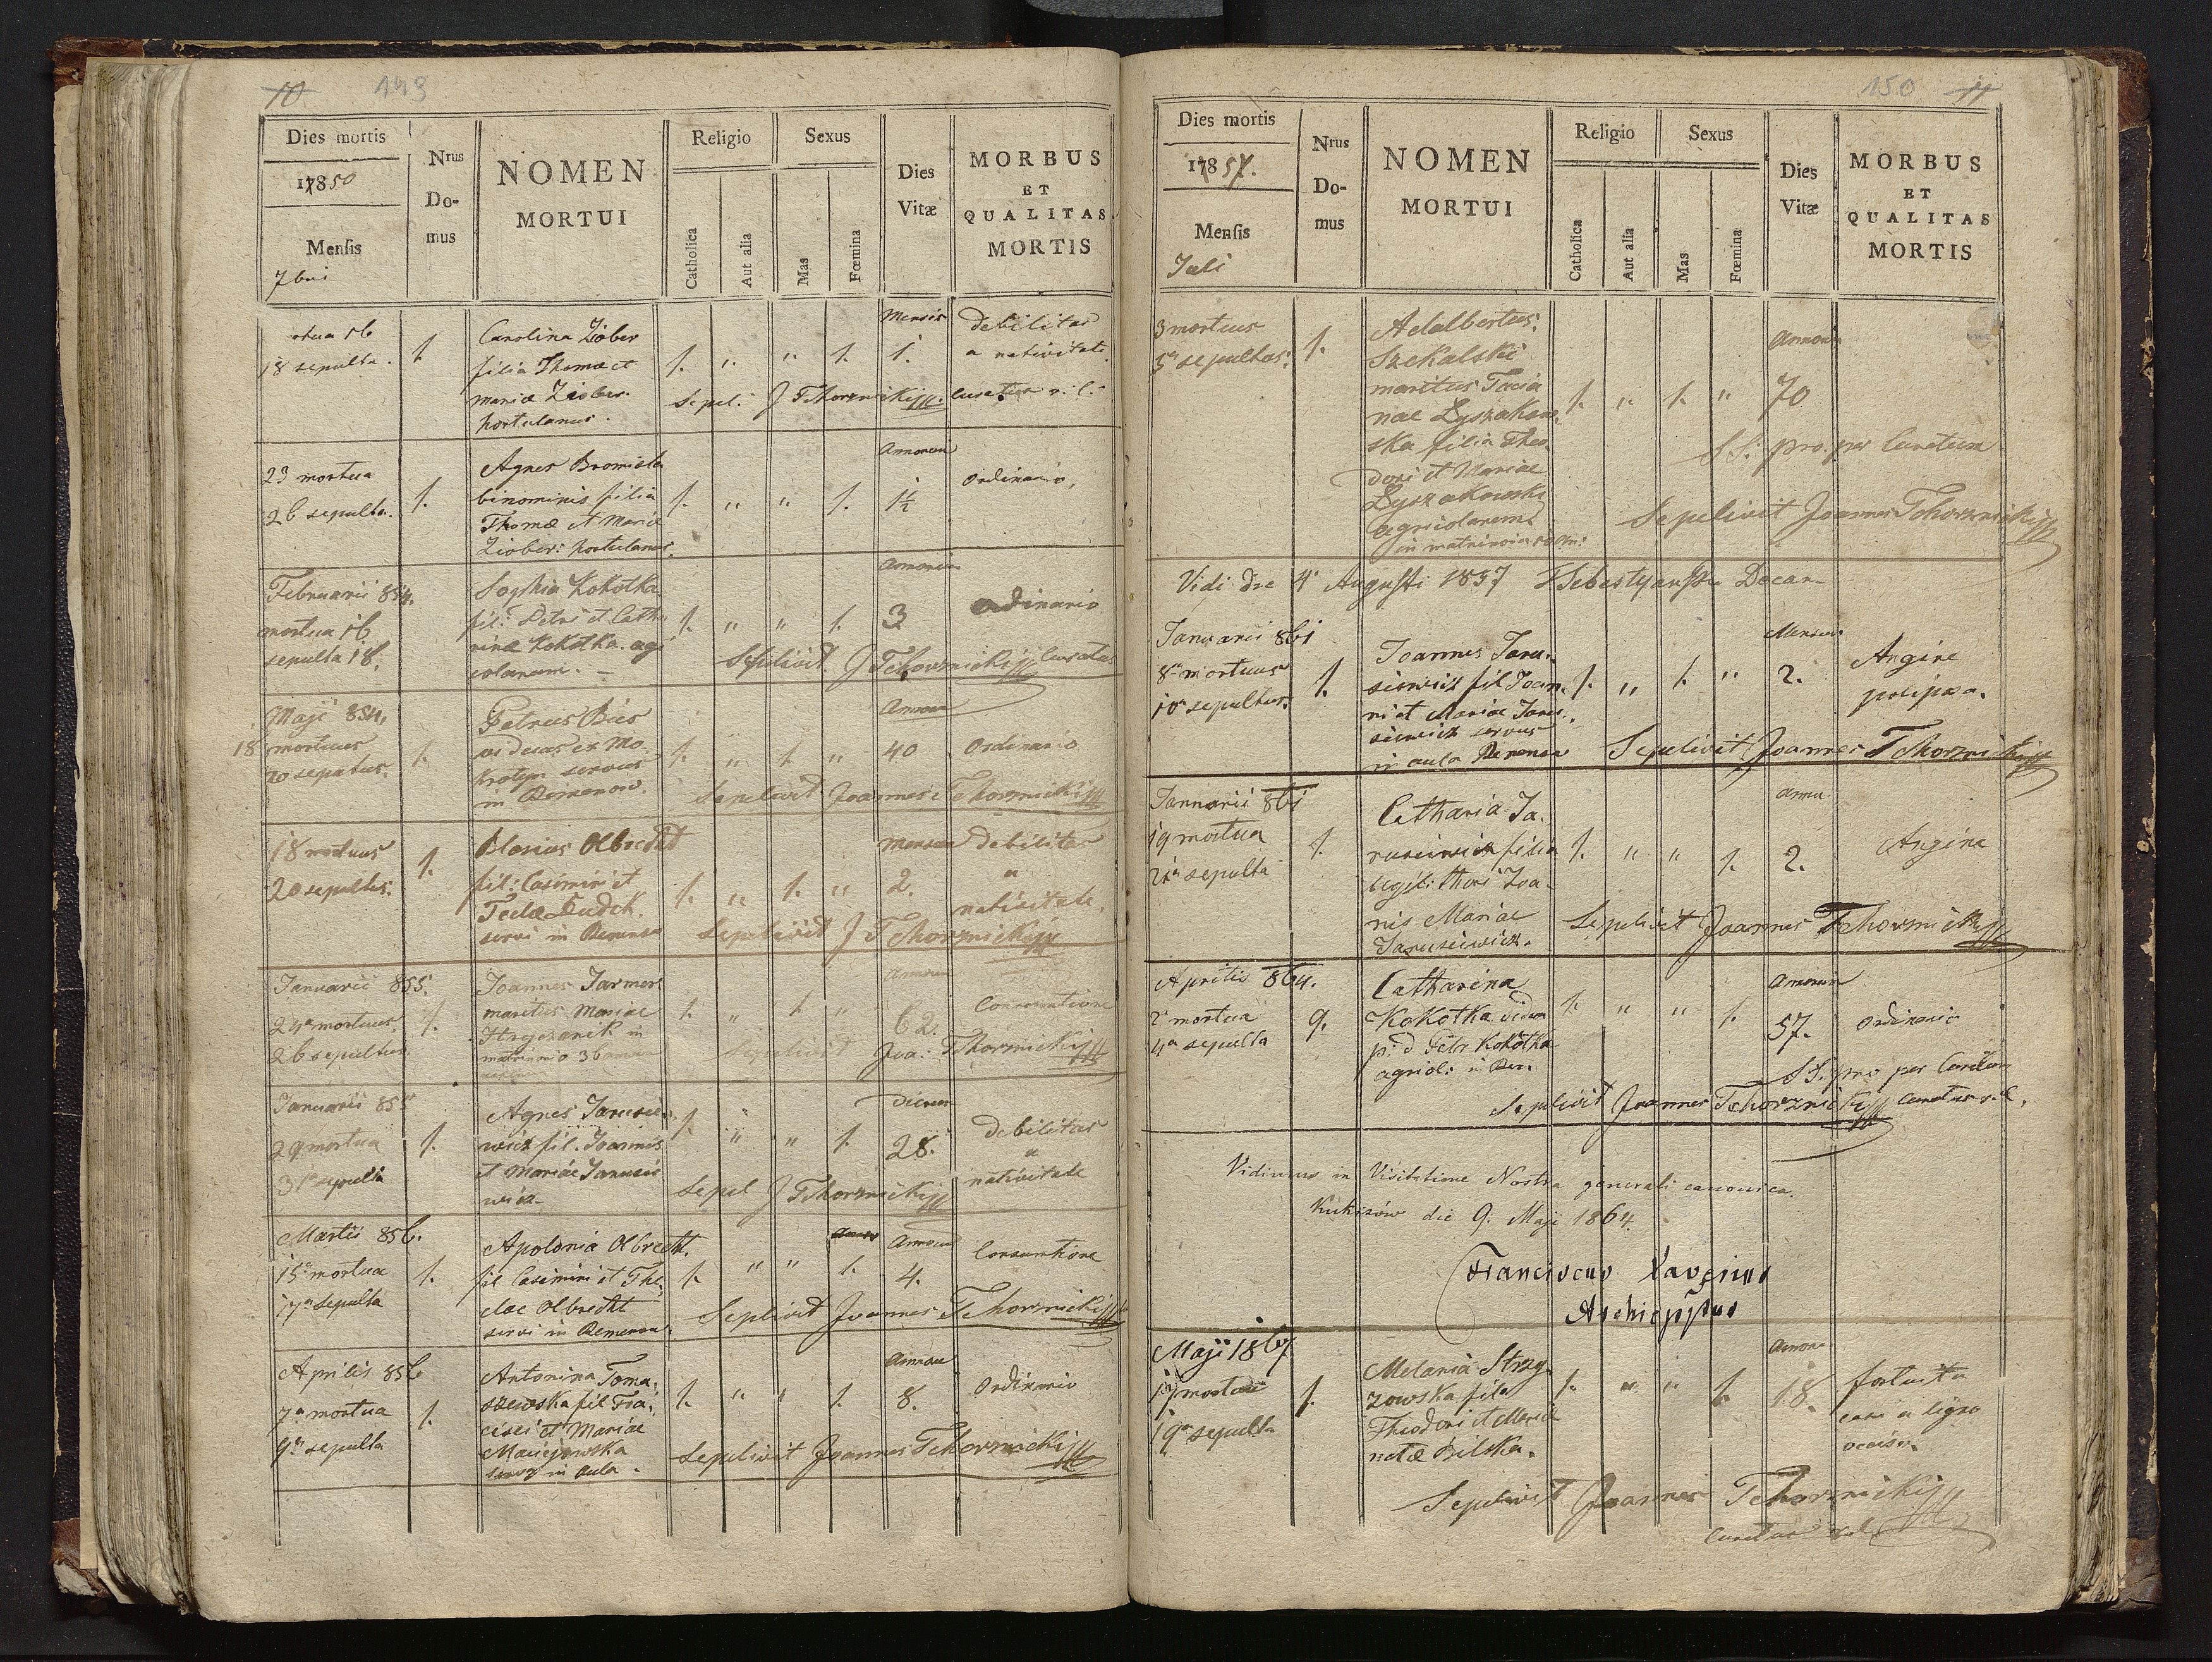 10 149
Dies mortis
17850
Mensis
7bri
Nrus
Do-
mus
NOMEN
MORTUI
Religio
Catholica
Aut alia
Sexus
Mas
Fœmina
Dies
Vitæ
MORBUS
ET
QUALITAS
MORTIS
16
18 sepulta.
1.
Carolina Ziober
filia Thomæ et
Mariæ Ziober.
hortulanus.
1. " " 1.
Mensis
1.
debilitas
a nativitate
Sepel: J Tchorznicki
23 mortua
26 sepulta.
1.
Agnes Bronisla
binominis filia
Thomæ et Mariæ
Ziober: hortulanus.
1. " " 1.
Annorum
1½
Ordinario,
Februarii 854.
mortua 16
sepulta 18.
Sophia Kokotka
fil: Petri et Catha
rinæ Kokotka. agri
colarum. –
1. " " 1.
Annorum
3
ordinario
Sepelivit J Tchorznicki Curatus
Maji 854.
18 mortuus
20 sepultus.
1.
Petrus Bies
ex Mo
krotyn servus
in Remenow.
1. " 1. "
Annorum
40
Ordinario
Sepelivit Joannes Tchorznicki
18 mortuus
20 sepultus:
1.
Blasius Olbrecht
fil: Casimiri et
Teclæ Dudek.
servi in Remenow
1. " 1. "
Mensium
2.
debilitas
a
nativitate.
Sepelivit J Tchorznicki
Januarii 855.
24a mortuus.
26 sepultus.
1.
Joannes Jarmer
maritus Mariae
in
matrimonio 36 annorum
1. " 1. "
Annorum
62.
Consumtione
Sepelivit Joa: Tchorznicki
Januarii 855
29 mortua
31a sepulta
1.
Agnes Jarusie-
wicz fil. Joannis
et Mariæ Jarusie
wicz–
1. " " 1.
Dierum
28.
debilitas
a
nativitate
Sepel J Tchorznicki
Martii 856.
15a mortua
17a sepulta
1.
Apolonia Olbrecht.
fil Casimiri et The
clae Olbrecht
servi in Remenow.
1. " " 1.
Annorum
4.
Consumtione
Sepelivit Joannes Tchorznicki
Aprilis 856
7a mortua
9a sepulta
1.
Antonina Toma-
szewska fil Fra-
cisci et Mariae
Maciejowska
in Aula.
1. " " 1.
Annorum
8.
Ordinario
Sepelivit Joannes Tchorznicki
150 11
Dies mortis
17857.
Mensis
Juli
Nrus
Do-
mus
NOMEN
MORTUI
Religio
Catholica
Aut alia
Sexus
Mas
Fœmina
Dies
Vitæ
MORBUS
ET
QUALITAS
MORTIS
3 mortuus
5a sepultus:
1.
Adalbertus
Szekalski
maritus Tacia
nae Lyszakow-
ska filia Theo
dori et Mariae
Lyszakowski
agricolarum
in matrimonio
1. " 1. "
Annorum
70
SS: pro. per Curatum
Sepelivit Joannes Tchorznicki
Vidi die 4 Augusti 1857 Decan–
Januarii 861
8a mortuus
10a sepultus.
1.
Joannes Jaru-
siewicz fil Joan-
ni et Mariae Jaru-
siewicz servus
in aula Remenow
1. " 1. "
Mensium
2.
Angine
Sepelivit Joannes Tchorznicki
Januarii 861
19 mortua
21a sepulta
1.
Catharia Ja-
rusiewicz filia
legit: thori Joa-
nis Mariae
Jarusiewicz.
1. " " 1.
2.
Angine
Sepelivit Joannes Tchorznicki
Aprilis 864.
2a mortua
4a sepulta
9.
Catharina
Kokotka vidua
p: d Petr Kokotka
agricol: in Rem.
1. " " 1.
Annorum
57.
Ordinario
SS. pro per Curatum
Sepelivit Joannes Tchorznicki Curatus
Vidimus in Visitatione Nostra generali canonica.
Kukizów die 9. Maji 1864.
Franciscus Xaverius
Archieppus
Maji 1867
17 mortua
19a sepulta
1.
Melania Strzy
zowska fila
Theodori et Mariæ
natæ Bilska.
1. " " 1.
18.
fortuita
casu a ligno
occisa.
Sepelivit Joannes Tchorznicki
Curatus